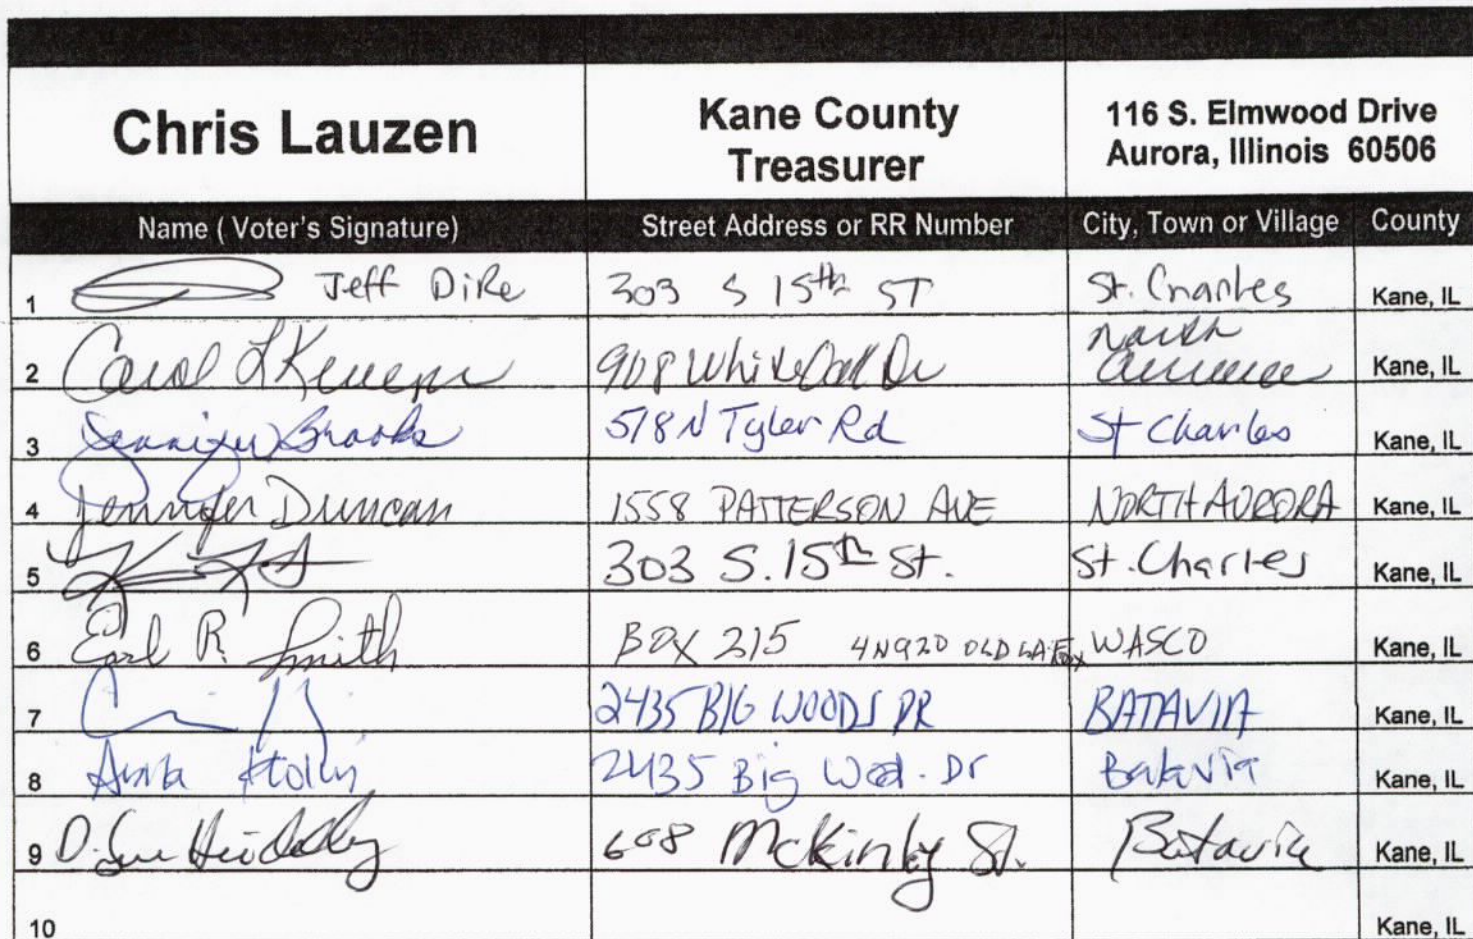 Chris Lauzen
Kane County
Treasurer
116 S. Elmwood Drive
Aurora, Illinois 60506
Name ( Voter's Signature) Street Address or RR Number City, Town or Village County
1 Jeff Dike 303 S 15th ST St. Charles Kane, IL
2 Carol L 908 White Oak Dr North Aurora Kane, IL
3 Jennifer Brooks 518 N Tyler Rd St Charles Kane, IL
4 Jennifer Duncan 1558 PATTERSON AVE NORTH AURORA Kane, IL
5 303 S. 15th St. St. Charles Kane, IL
6 Earl R. Smith BOX 215 4N920 OLD LAFOX WASCO Kane, IL
7 2435 BIG WOODS DR BATAVIA Kane, IL
8 2435 Big Wood. Dr Batavia Kane, IL
9 D. Sue 608 McKinley St. Batavia Kane, IL
10 Kane, IL